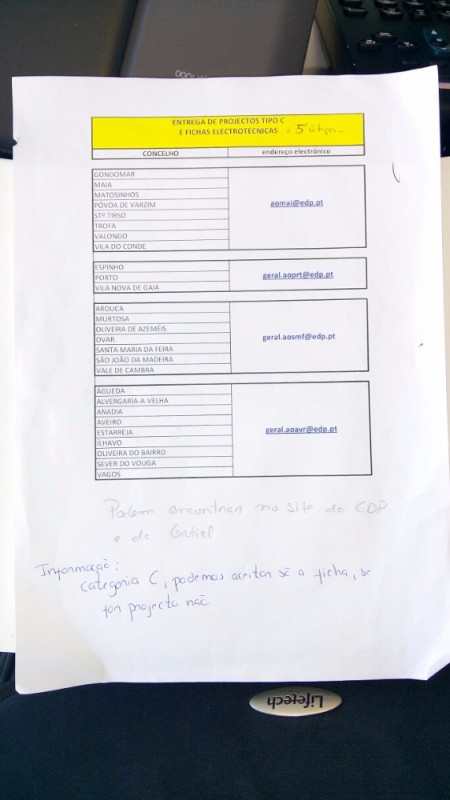 ENTREGA DE PROJECTOS TIPO C
E FICHAS ELECTROTECNICAS
CONCELHO endereço electrónico
GONDOMAR
MAIA
MATOSINHOS
PÓVOA DE VARZIM
STº TIRSO
TROFA
VALONGO
VILA DO CONDE
aomai@edp.pt
ESPINHO
PORTO
VILA NOVA DE GAIA
geral.aoprt@edp.pt
AROUCA
MURTOSA
OLIVEIRA DE AZEMÉIS
OVAR
SANTA MARIA DA FEIRA
SÃO JOÃO DA MADEIRA
VALE DE CAMBRA
geral.aosmf@edp.pt
ÁGUEDA
ALVERGARIA-A-VELHA
ANADIA
AVEIRO
ESTARREJA
ÍLHAVO
OLIVEIRA DO BAIRRO
SEVER DO VOUGA
VAGOS
geral.aoavr@edp.pt
Podem encontrar no site da EDP
e da Certiel
Informação:
Categoria C, podemos aceitar só a ficha, se
for projecto não
Lifetech